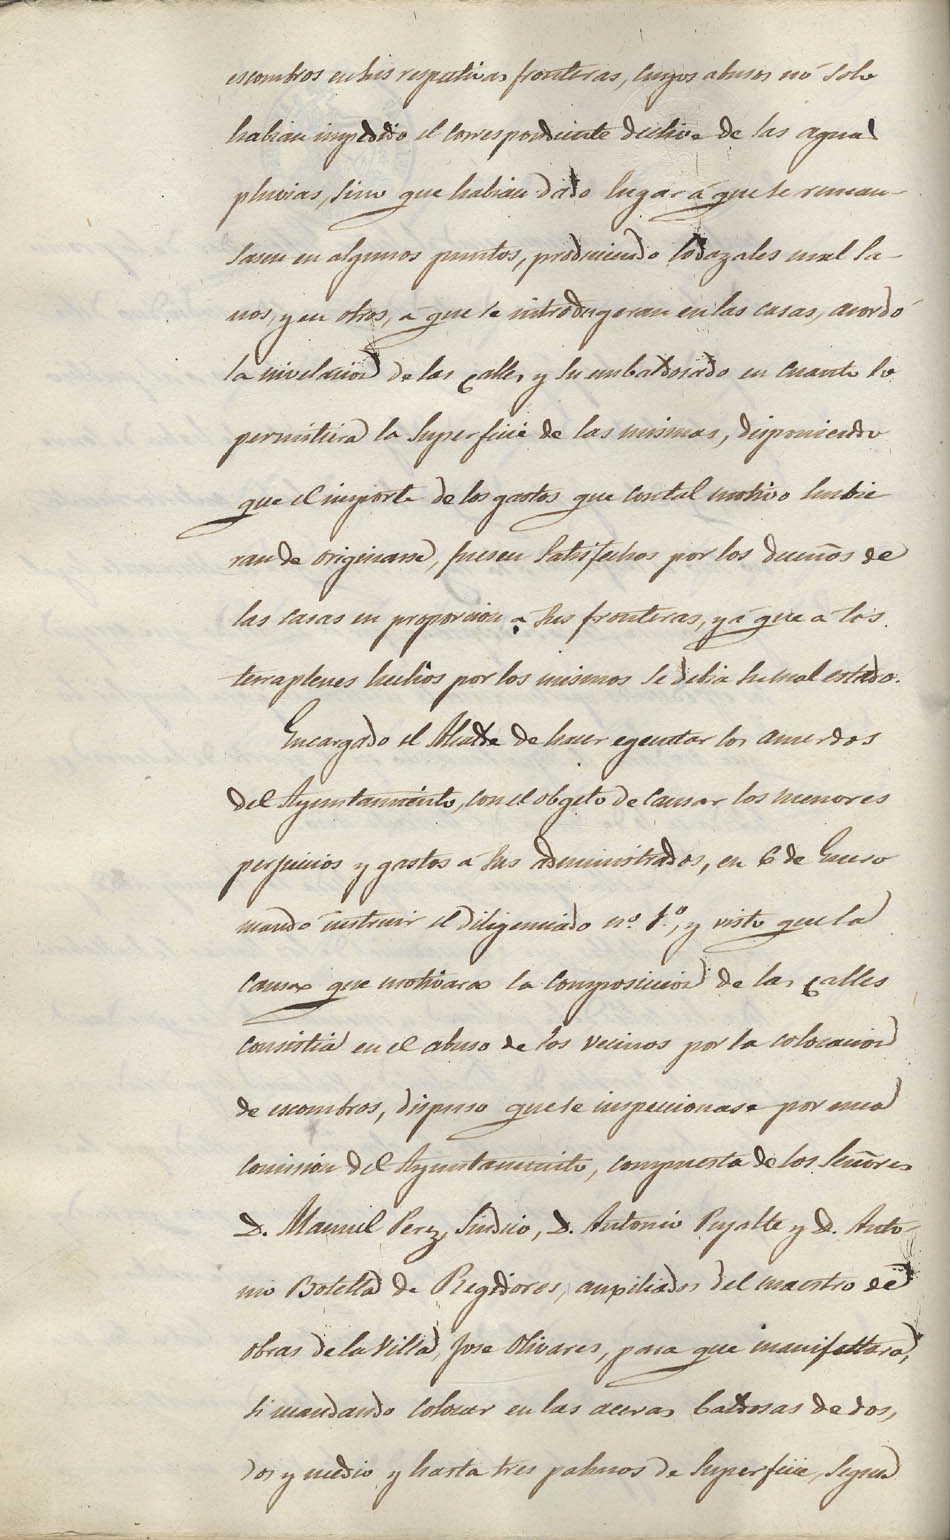 escombros en sus respectivas fronteras, cuyos abusos nó solo
habian impedido el correspondiente declive de las aguas
pluvias, sino que habian dado lugar á que se reman-
sasen en algunos puntos, produciendo lodazales mal sa-
nos, y en otros, á que se introdugeran en las casas, acordó
la nivelacion de las calles y su embaldosado en cuanto lo
permitiera la superficie de las mismas, disponiendo
que el importe de los gastos que con tal motivo hubie
ran de originarse, fuesen satisfechos por los dueños de
las casas en proporcion a sus fronteras, yá que á los
terraplenes hechos por los mismos se debia su mal estado.
Encargado el Alcalde de hacer egecutar los acuerdos
del Ayuntamiento, con el objeto de causar los menores
perjuicios y gastos á sus administrados, en 6 de Enero
mandó instruir el diligenciado nº. 1º., y visto que la
causa que motivara la composicion de las calles
consistia en el abuso de los vecinos por la colocacion
de escombros, dispuso que se inspeccionase por una
comision del Ayuntamiento, compuesta de los Señores
D. Manuel Perez, Sindico, D. Antonio Puyalte y D. Anto-
nio Botella de Regidores, aupiliados del maestro de
obras de la Villa, Jose Olivares, para que manifestara,
si mandando colocar en las aceras baldosas de dos,
dos y medio y hasta tres palmos de superficie, segun